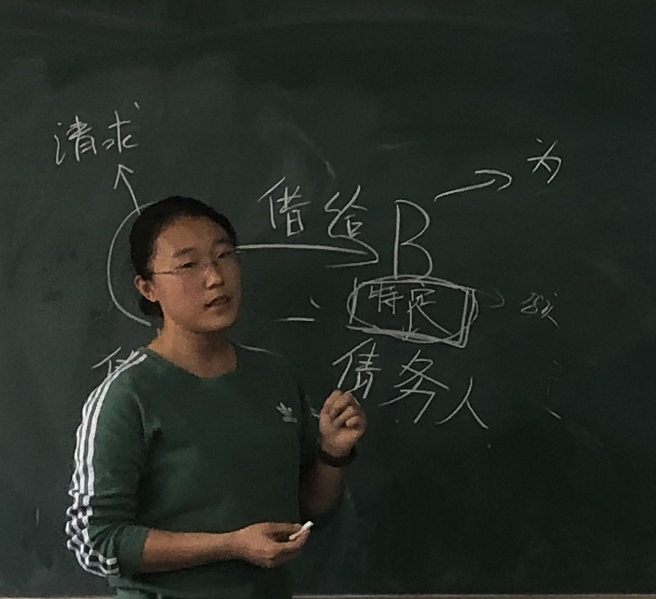 请求
借给
B
为
特定
债务人